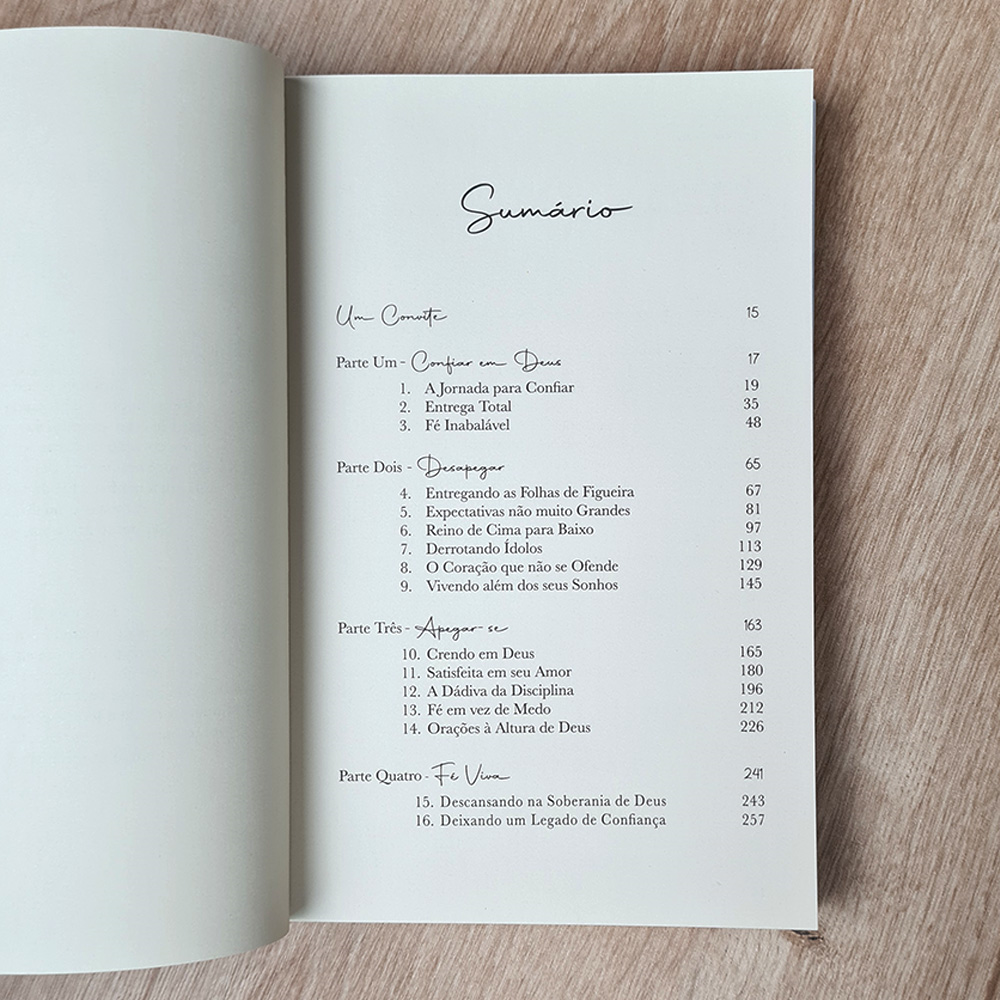 Sumário
Um Convite 15
Parte Um - Confiar em Deus 17
1. A Jornada para Confiar 19
2. Entrega Total 35
3. Fé Inabalável 48
Parte Dois - Desapegar 65
4. Entregando as Folhas de Figueira 67
5. Expectativas não muito Grandes 81
6. Reino de Cima para Baixo 97
7. Derrotando Ídolos 113
8. O Coração que não se Ofende 129
9. Vivendo além dos seus Sonhos 145
Parte Três - Apegar-se 163
10. Crendo em Deus 165
11. Satisfeita em seu Amor 180
12. A Dádiva da Disciplina 196
13. Fé em vez de Medo 212
14. Orações à Altura de Deus 226
Parte Quatro - Fé Viva 241
15. Descansando na Soberania de Deus 243
16. Deixando um Legado de Confiança 257